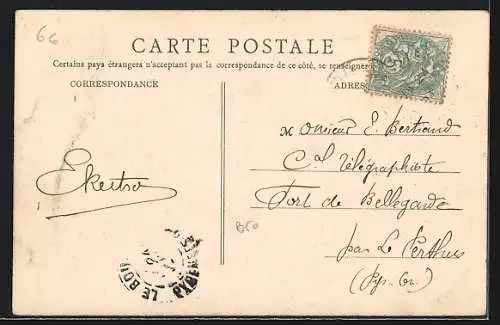 66
CARTE POSTALE
Certains pays étrangers n'acceptant pas la correspondance de ce côté, se renseigner
CORRESPONDANCE
ADRES
5
Monsieur E. Bertrand
Cal Télégraphiste
Fort de Bellegarde
par Le Perthus
(Pyr. Or.)
B50
LE BOU